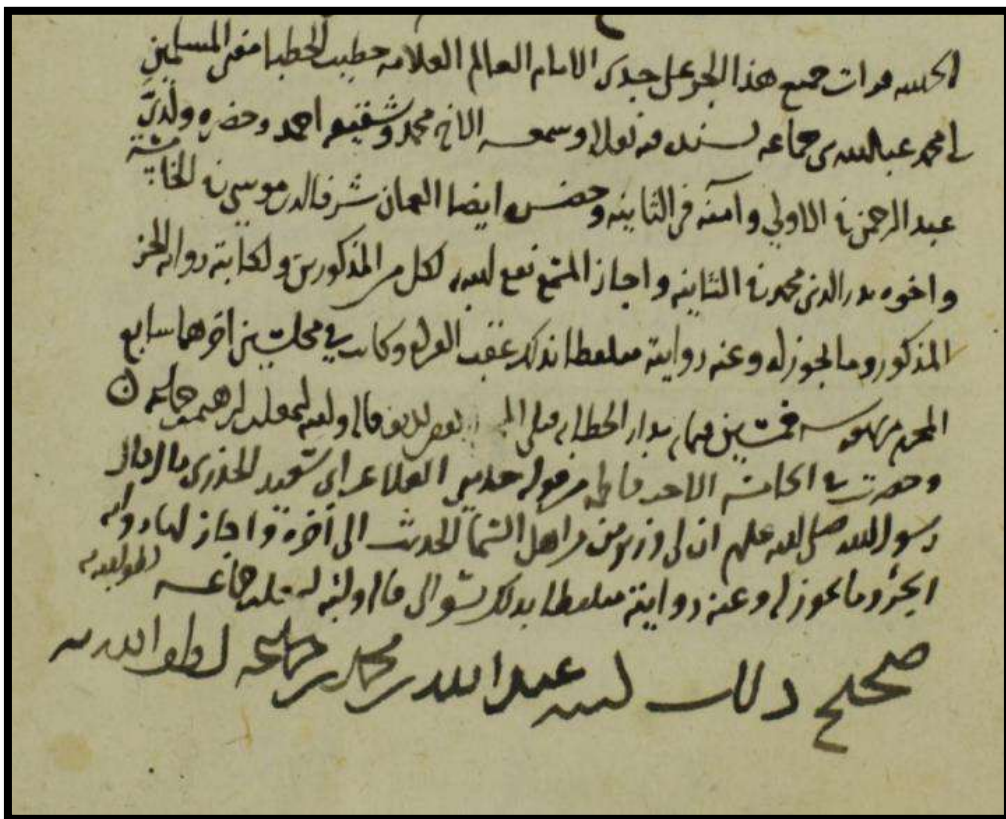 الحمد لله قرات جميع هذا الجزء على جدي الامام العالم العلامه خطيب الخطبا مفتي المسلمين
ابي محمد عبد الله بن جماعه بسنده فيه نقلا وسمعه الاخ محمد وشقيقه احمد وحضره ولداي
عبد الرحمن في الاولي وآمنه في الثانيه وحضره ايضا العمان شرف الدين موسي في الخامسة
واخوه بدر الدين محمد في الثانيه واجاز المسمع نفع الله به لكل من المذكورين ولكاتبه رواية الجزء
المذكور وما يجوز له وعنه روايته متلفظا بذلك عقب القراءه وكانت في مجلسين اخرهما سابع
المحرم سنه ستين بدار الخطابه قاله وكتبه ابراهيم بن جماعه
وحضرت في الخامسه فاطمه من قوله حديث العلا عن ابي سعيد الخدري قال قال
رسول الله صلى الله عليه وسلم ان لي وزيرين من اهل السما الحديث الى آخره واجاز لها روايه
الجزء وما يجوز له وعنه روايته متلفظا بذلك بسوالي قاله وكتبه ابن جماعه لطف الله به
صحيح ذلك كتبه عبد الله بن محمد بن جماعه لطف الله به